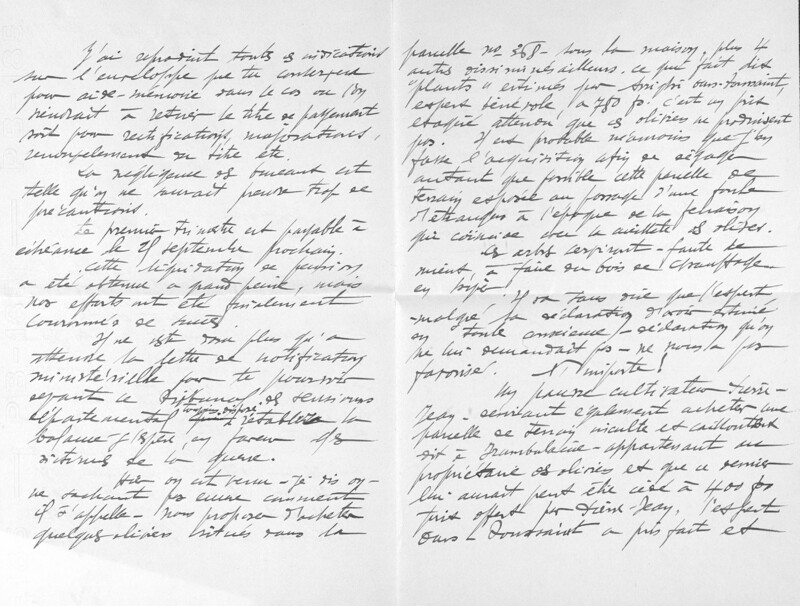 J'ai reproduit toutes ces indications
sur l'enveloppe que tu conserveras
pour aide-mémoire dans le cas où l'on
viendrait à retirer le titre de paiement
soit pour rectifications, majorations,
renouvellement du titre etc.
La négligence des bureaux est
telle qu'on ne saurait prendre trop de
précautions.
Le premier trimestre est payable à
échéance le 25 septembre prochain.
Cette liquidation de pension
a été obtenue à grand peine, mais
nos efforts ont été finalement
couronnés de succès.
Il ne reste donc plus qu'à
attendre la lettre de notification
ministérielle pour te pourvoir
devant ce Tribunal des pensions
départemental toujours disposé à rétablir la
balance - j'espère, en faveur des
victimes de la guerre.
Hier on est venu - je dis on -
ne sachant pas encore comment
il s'appelle - nous proposer d'acheter
quelques oliviers situés dans la
parcelle no 368 - sous la maison, plus 4
autres disséminés ailleurs, ce qui fait dix
plants estimés par Ours-Toussaint,
expert bénévole à 750 fs. c'est un prix
attendu que ces oliviers ne produisent
pas. Il est probable néanmoins que j'en
fasse l'acquisition afin de dégager
autant que possible cette parcelle de
terrain exposée au passage d'une foule
d'étrangers à l'époque de la fenaison
qui coïncide avec la cueillette des olives.
Ces arbres serviront - faute de
mieux à faire du bois de chauffage
Il va sans dire que l'expert
- malgré sa déclaration d'avoir estimé
en toute conscience - déclaration qu'on
ne lui demandait pas - ne nous a pas
favorisé. N'importe !
Un pauvre cultivateur -
Jean - désirant également acheter une
parcelle de terrain inculte et caillouteux
dit à - appartenant au
propriétaire des oliviers et que ce dernier
lui aurait peut être cédé à 400 fs
prix offert par Jean, l'expert
Ours - Toussaint a pris fait et